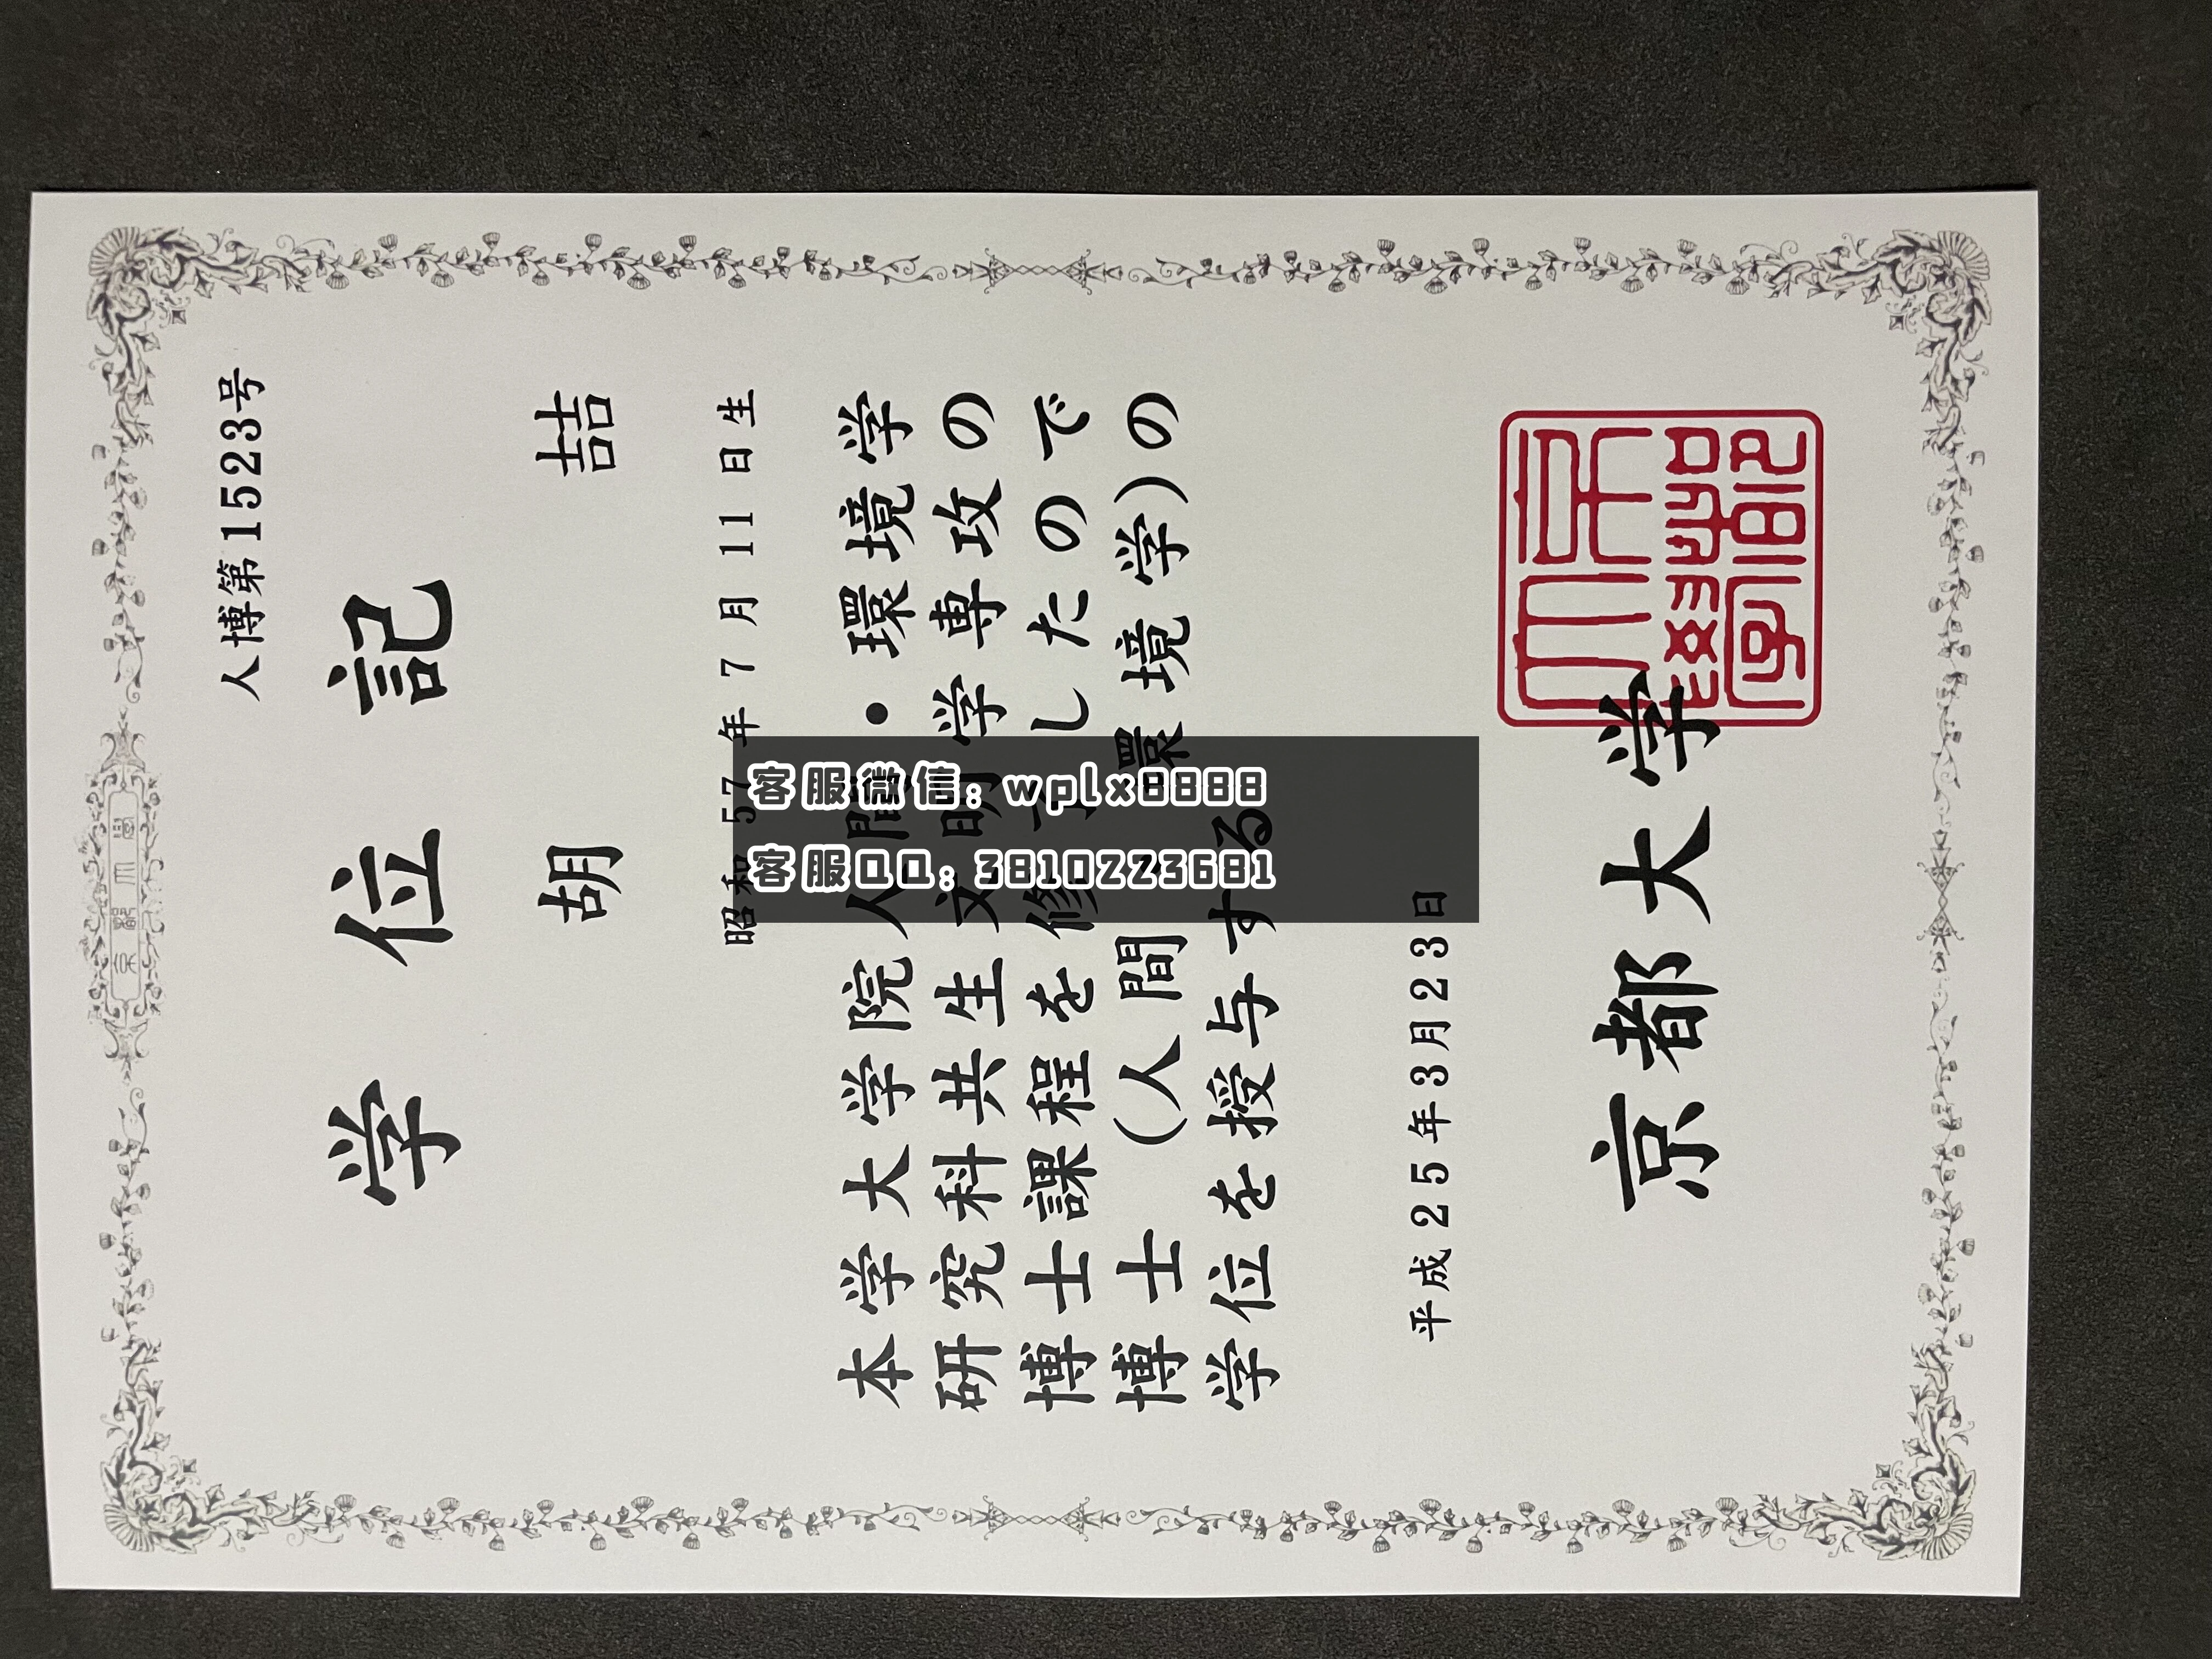 京都大學
人博第1523号
学位記
胡 喆
昭和57年7月11日生
本学大学院人間・環境学
研究科共生文明学専攻の
博士課程を修了したので
博士(人間・環境学)の
学位を授与する
平成25年3月23日
京都大学
京都大學
客服微信: wplx8888
客服QQ: 3810223681